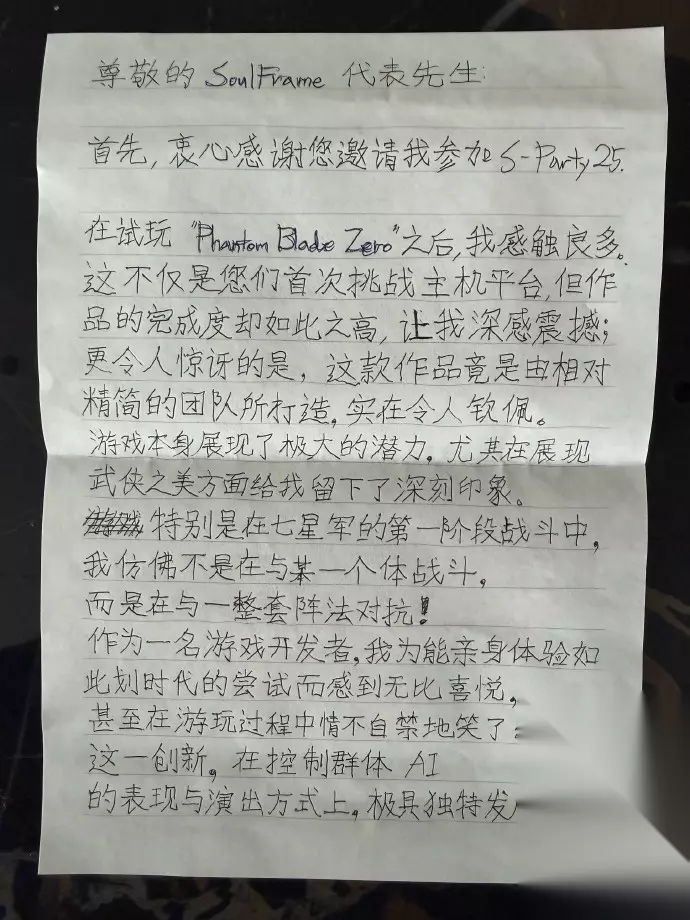 尊敬的 SoulFrame 代表先生:
首先,衷心感谢您邀请我参加 S-Party 25.
在试玩 “Phantom Blade Zero”之后,我感触良多。
这不仅是您们首次挑战主机平台,但作
品的完成度却如此之高,让我深感震撼;
更令人惊讶的是,这款作品竟是由相对
精简的团队所打造,实在令人钦佩。
游戏本身展现了极大的潜力,尤其在展现
武侠之美方面给我留下了深刻印象。
特别是在七星军的第一阶段战斗中,
我仿佛不是在与某一个体战斗,
而是在与一整套阵法对抗!
作为一名游戏开发者,我为能亲身体验如
此划时代的尝试而感到无比喜悦,
甚至在游玩过程中情不自禁地笑了:
这一创新,在控制群体 AI
的表现与演出方式上,极具独特发